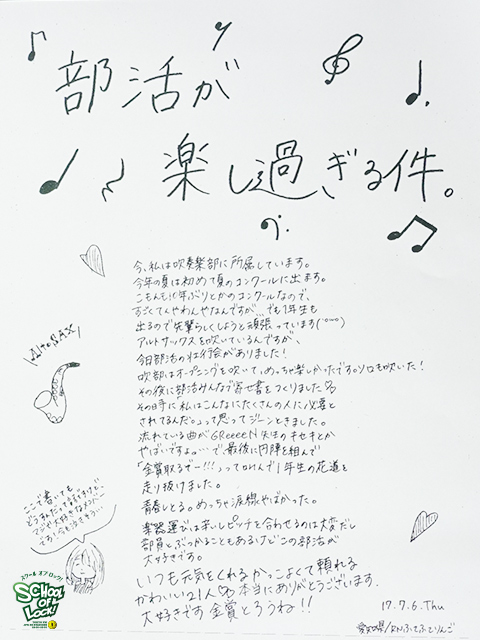 部活が
楽し過ぎる件。
今、私は吹奏楽部に所属しています。
今年の夏は初めて夏のコンクールに出ます。
こもんも10年ぶりとかのコンクールなので、
すごくてんやわんやなんですが、、でも1年生も
出るので先輩らしくしようと頑張っています
アルトサックスを吹いているんですが、
今日部活の壮行会がありました！
吹部はオープニングを吹いて、めっちゃ楽しかったです。ソロも吹いた！
その後に部活みんなで寄せ書をつくりました
その時に私はこんなにたくさんの人に必要と
されてるんだ。って思ってジーンときました。
流れている曲がGReeeeN先生のキセキとか
やばいですよ。…で、最後に円陣を組んで
「金賞取るぞー!!!」って叫んで1年生の花道を
走り抜けました。
青春しとる。めっちゃ涙線やばかった。
楽器運びは辛いしピッチを合わせるのは大変だし
部員とぶつかることもあるけどこの部活が
大好きです。
いつも元気をくれるかっこよくて頼れる
かわいい21人 本当にありがとうございます。
大好きです 金賞とろうね!!
Alto SAX
ここで書いても
マジで大好きなメンバー
です!
スクール オブ ロック!
SCHOOL OF LOCK!
17.7.6.Thu
愛知県/RNふてふてりんご